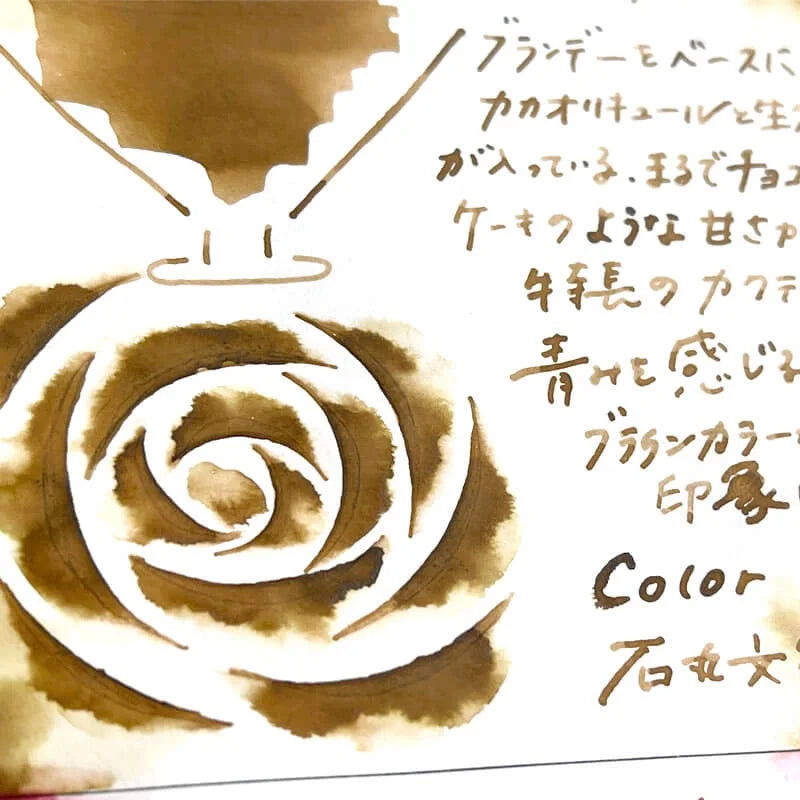 ブランデーをベースに
カカオリキュールと生
が入っている、まるでチョコ
ケーキのような甘さが
特長のカクテ
青みを感じる
ブラウンカラー
印象
Color
石丸文